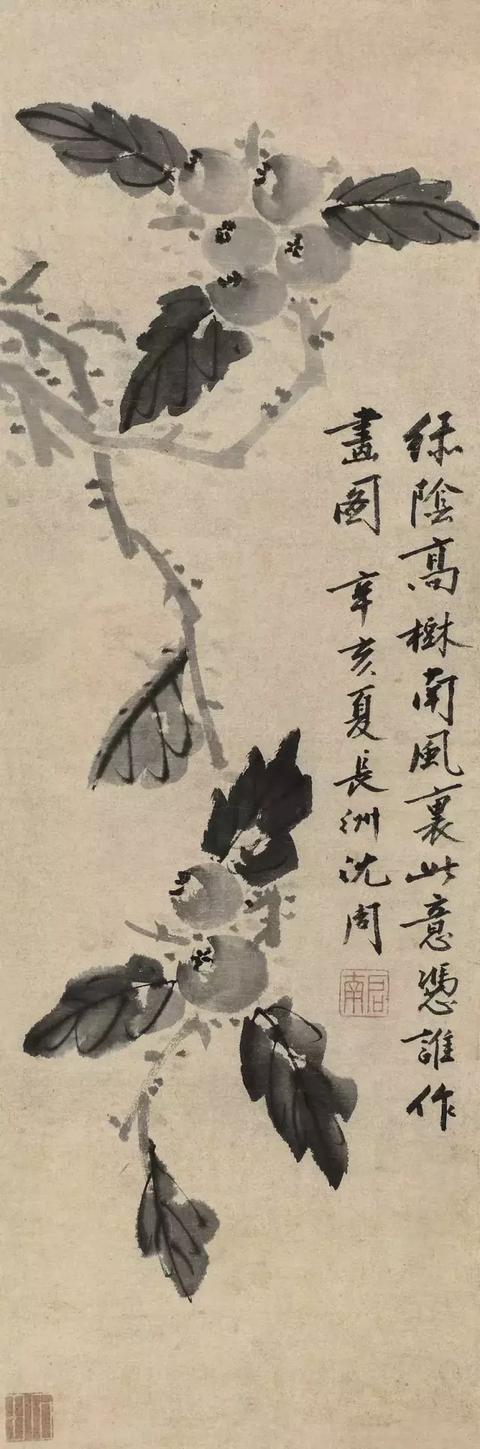 綠陰高樹南風裏此意憑誰作
畫圖 辛亥夏長洲沈周
啟南